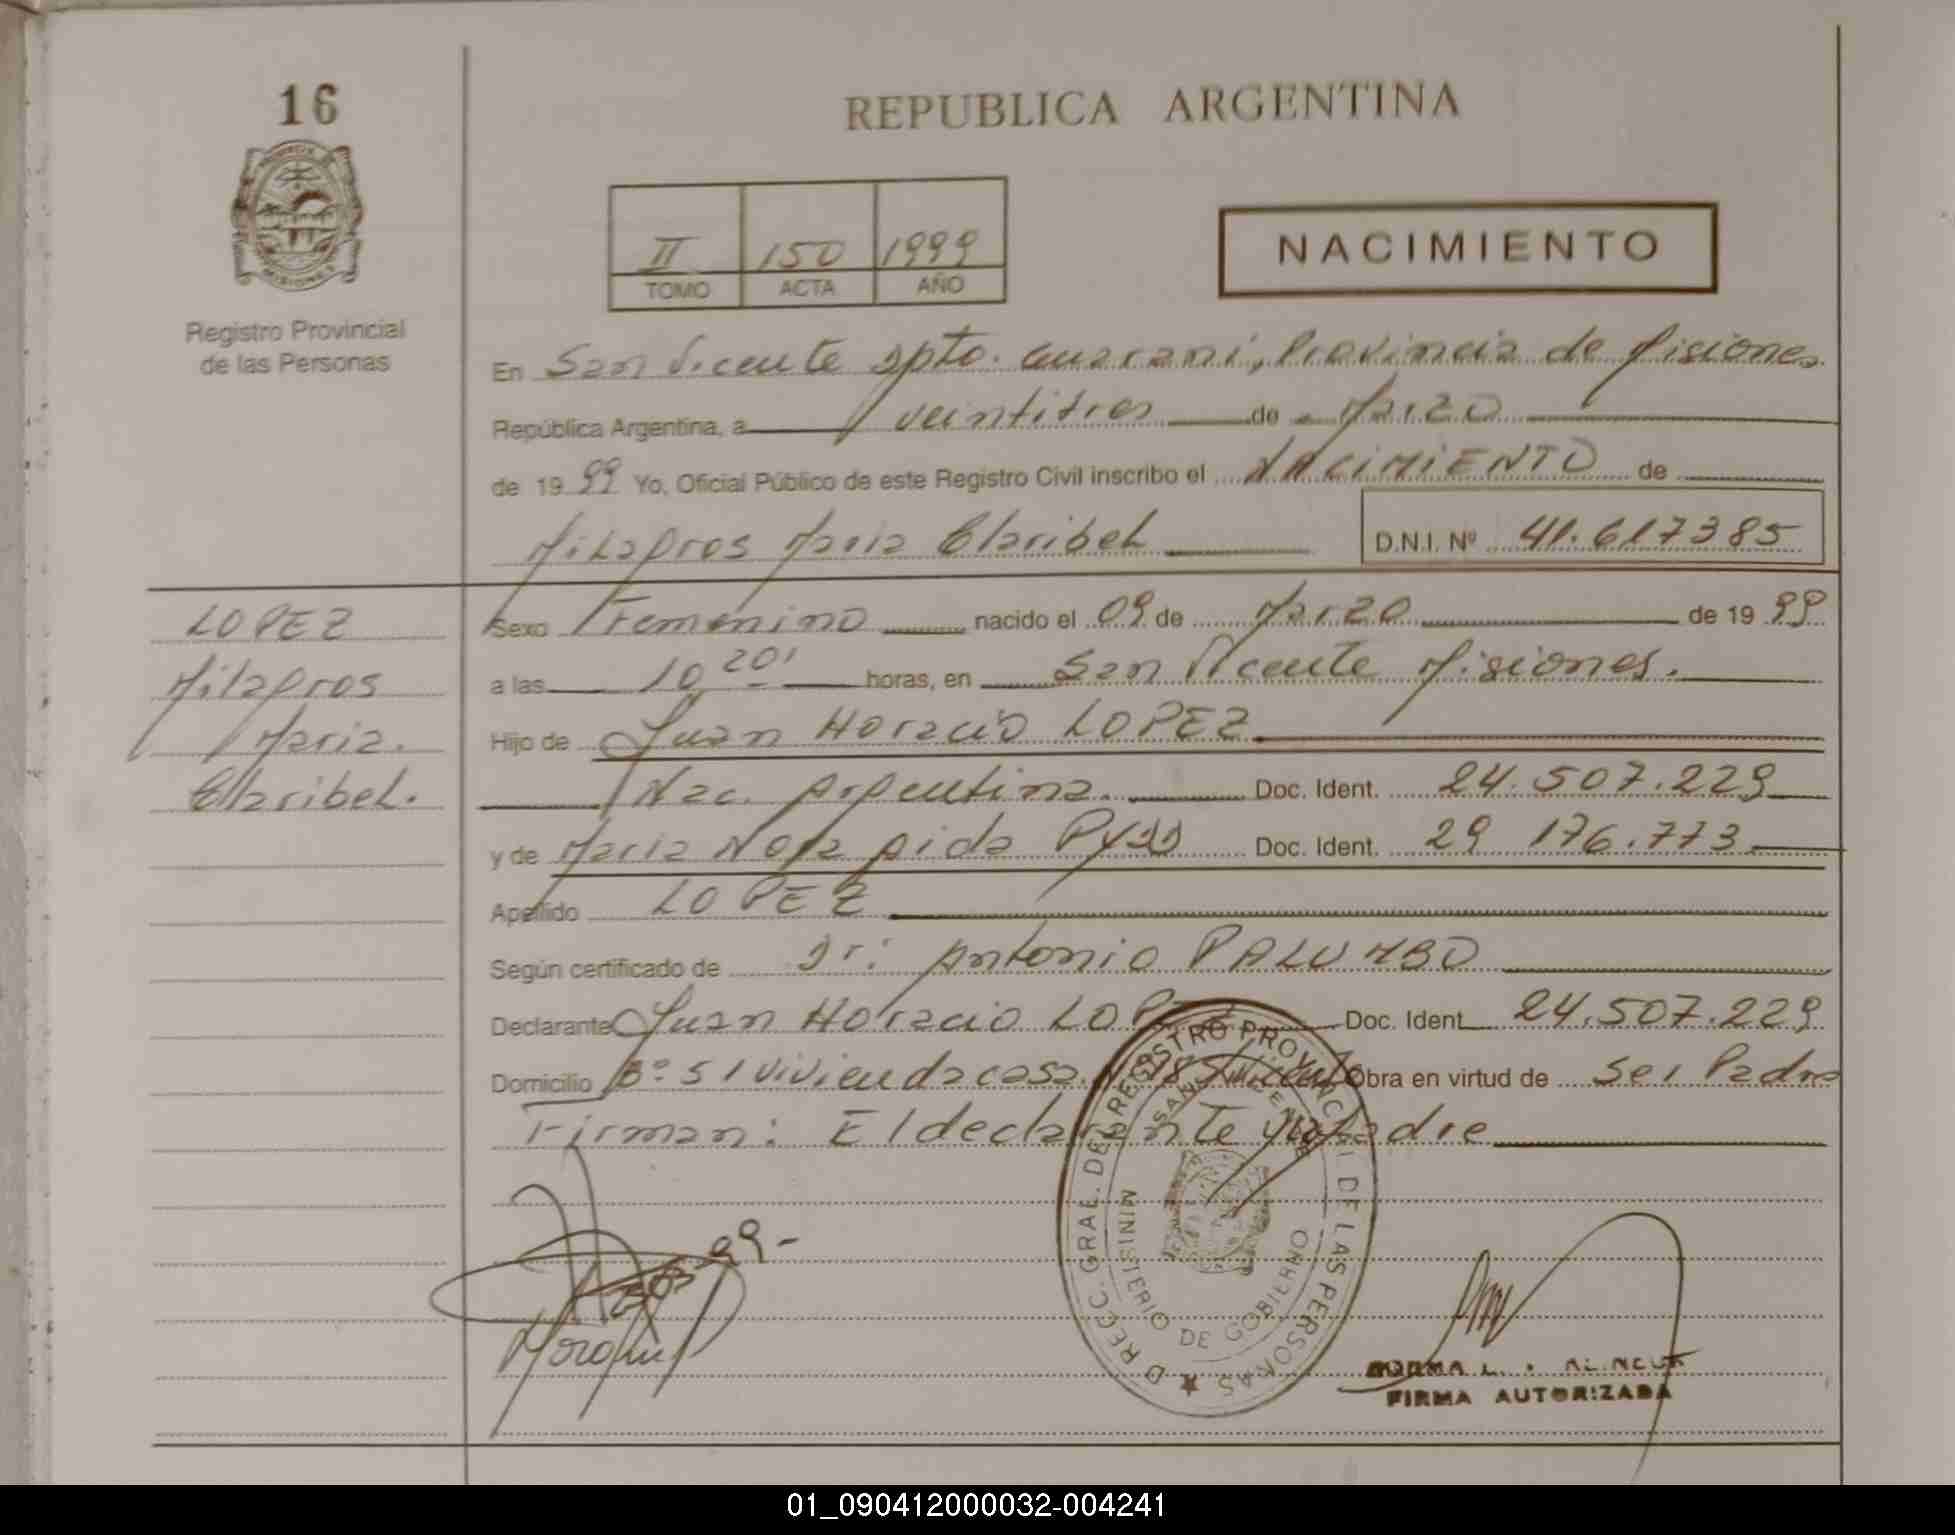 16
REPUBLICA ARGENTINA
PROVINCIA DE
MISIONES
Registro Provincial
de las Personas
II 150 1999
TOMO ACTA AÑO
NACIMIENTO
En San Vicente Dpto. Guaraní, Provincia de Misiones
República Argentina, a veintitres de Marzo
de 1999 Yo, Oficial Público de este Registro Civil inscribo el NACIMIENTO de
Milagros Maria Claribel D.N.I. Nº 41.617385
LOPEZ
Milagros
Maria.
Claribel.
Sexo Femenino nacido el 09 de Marzo de 1999
a las 10 20' horas, en San Vicente Misiones.
Hijo de Juan Horacio LOPEZ
Nac. Argentina. Doc. Ident. 24.507.229
y de Maria Doc. Ident. 29 176.773
Apellido LOPEZ
Según certificado de Dr: Antonio PALUMBO
Declarante Juan Horacio LOPEZ Doc. Ident. 24.507.229
Domicilio Bº 51 Vivienda casa Obra en virtud de ser Padre
Firman: El declarante y Madre
DIRECC. GRAL. DEL REGISTRO PROVINCIAL DE LAS PERSONAS
SAN VICENTE
MINISTERIO DE GOBIERNO
99-
NORMA L.
FIRMA AUTORIZADA
01_090412000032-004241